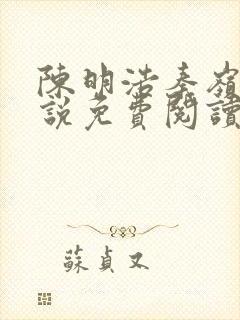 陳明浩秦嶺
說免費閱讀
蘇貞又